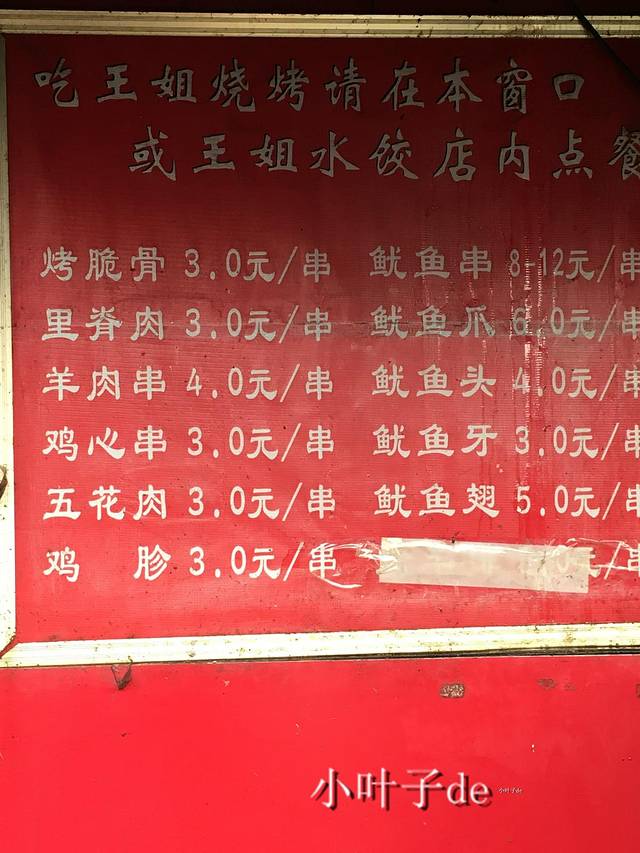 吃王姐烧烤请在本窗口
或王姐水饺店内点餐
烤脆骨 3.0元/串 鱿鱼串 8-12元/串
里脊肉 3.0元/串 鱿鱼爪 6.0元/串
羊肉串 4.0元/串 鱿鱼头 4.0元/串
鸡心串 3.0元/串 鱿鱼牙 3.0元/串
五花肉 3.0元/串 鱿鱼翅 5.0元/串
鸡 胗 3.0元/串 元/串
小叶子de
小叶子de